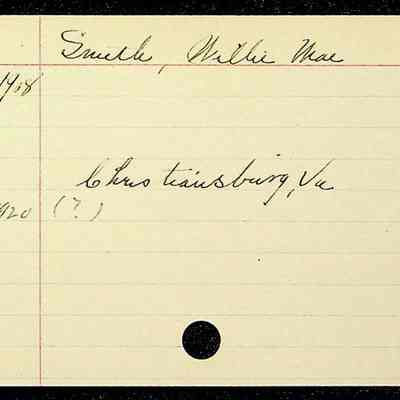 Smith, Willie Mae
1908
Christiansburg, Va
1920 (?)